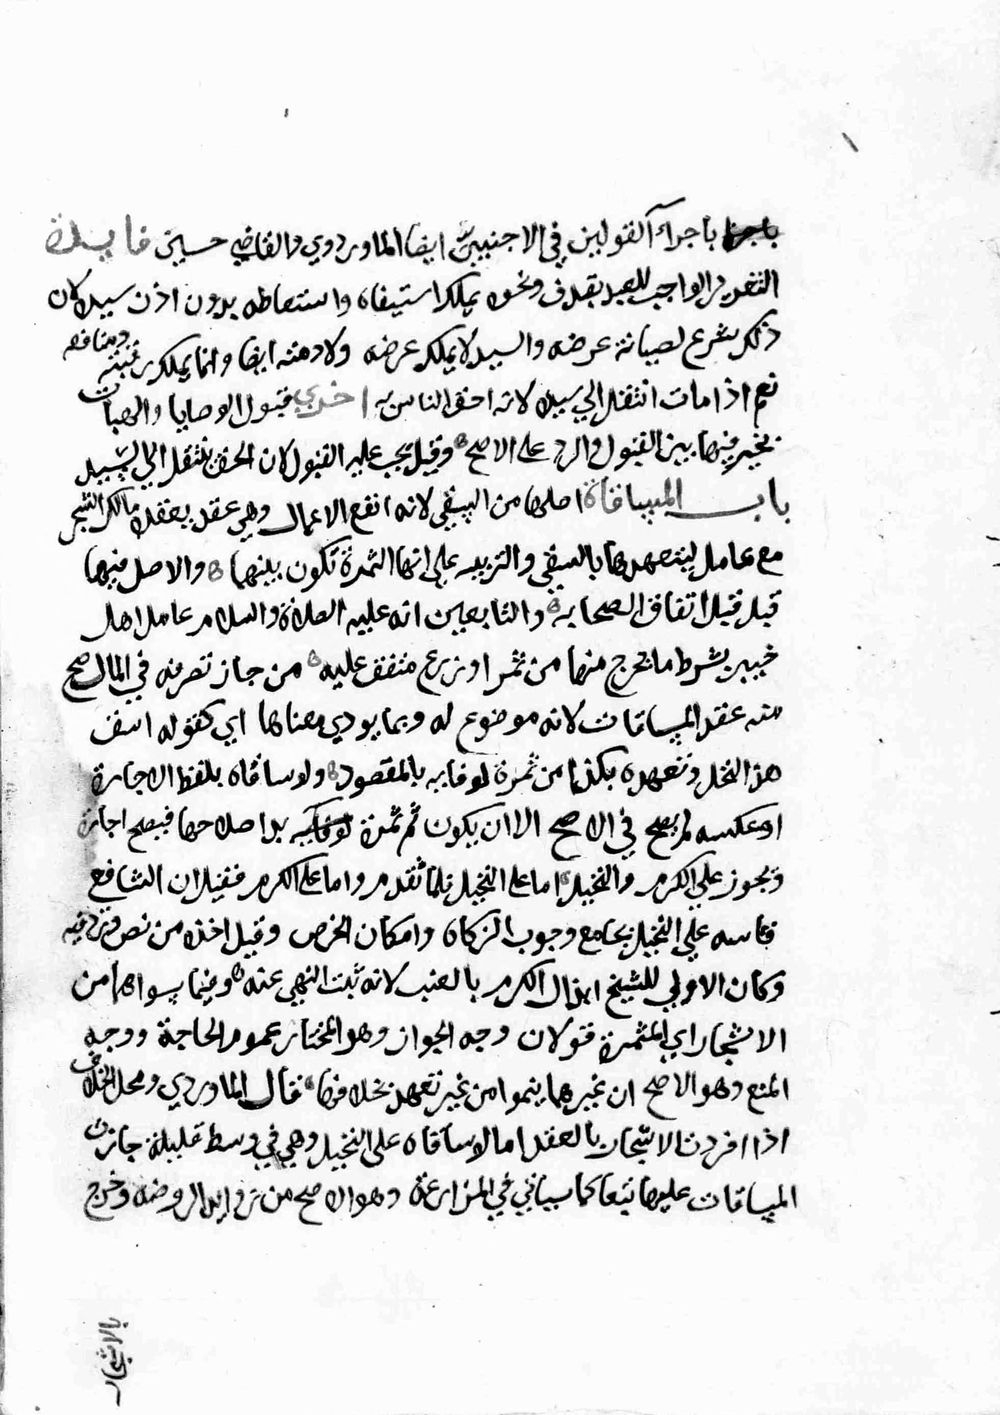 باجراء القولين في الاجنبيين ايضا الماوردي والقاضي حسين فايدة
التعزير الواجب للعبد بقذف ونحوه يملك استيفاه واسقاطه بدون اذن سيده لان
ذلك شرع لصيانة عرضه والسيد لا يملك عرضه ولا دمته ايضا وانما يملك رقبته ومنافعه
نعم اذا مات انتقل الي سيده لانه احق الناس به اخري قبول الوصايا والهبات
يخير فيها بين القبول والرد علي الاصح وقيل يجب عليه القبول لان الحق ينتقل الي السيد
باب المساقاة اصلها من السقي لانه انفع الاعمال وهي عقد يعقده مالك الشجر
مع عامل ليتعهدها بالسقي والتربيه علي انها الثمرة تكون بينهما والاصل فيها
قبل قيل اتفاق الصحابه والتابعين انه عليه الصلاة والسلام عامل اهل
خيبر بشرط ما يخرج منها من ثمر او زرع متفق عليه من جاز تصرفه في المال صح
منه عقد المساقات لانه موضوع له وبما يودي معناها اي كقوله اسق
هذا النخل وتعهده بكذا من ثمرة لوفايه بالمقصود ولو ساقاه بلفظ الاجارة
او عكسه لم يصح في الاصح الا ان يكون ثم ثمرة بدا صلاحها فيصح اجارة
ويجوز علي الكرم والنخيل اما علي النخيل فلما تقدم واما علي الكرم فقيل ان الشافعي
قاسه علي النخيل بجامع وجوب الزكاة وامكان الخرص وقيل اخذه من نص ورد فيه
وكان الاولي للشيخ ابدال الكرم بالعنب لانه ثبت النهي عنه وفيما سواهما من
الاشجار اي المثمرة قولان وجه الجواز وهو المختار عموم الحاجة ووجه
المنع وهو الاصح ان غيرهما ينموا من غير تعهد بخلافهما قال الماوردي ومحل الخلاف
اذا افردت الاشجار بالعقد اما لو ساقاه علي النخيل وهي في وسط قليلة جازت
المساقات عليها تبعا كما سياتي في المزارعة وهو الاصح من زوايد الروضه وخرج
بالاشجار